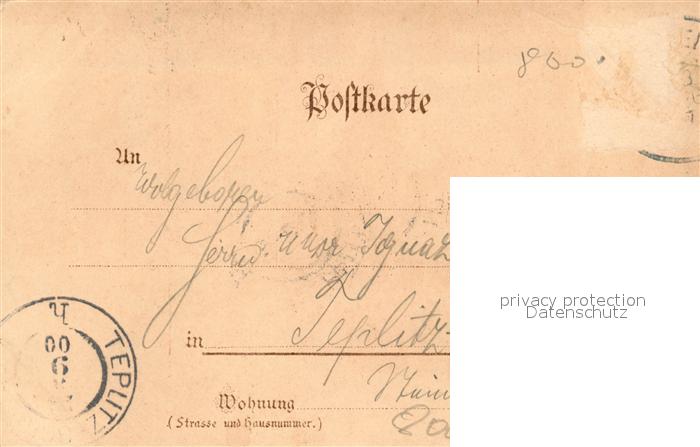 800.
Postkarte
An
Wolgeboren
Herrn Ignaz
in Teplitz
Wohnung
(Strasse und Hausnummer.)
TEPLITZ
h
00
6
privacy protection
Datenschutz